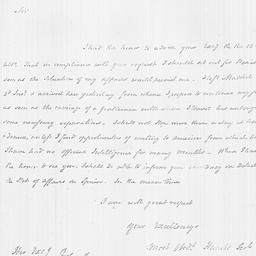 Sir
I had the honor to advise your Excy on the 10th
Ulto. that in compliance with your request I should set out for Paris as
soon as the situation of my affairs would permit me. I left Madrid
& arrived here yesterday from whence I propose to continue my
as soon as the carriage of a gentleman with whom I travel has undergone
some necessary reparations. I shall not stop more than a day at
unless I find opportunities of writing to America from which
I have had no official Intelligence for many months. When I have
the honor to see you, I shall be able to inform your Excellency in detail
the State of affairs in Spain. In the mean time
I am with great respect
Your Excellency's
most Obedt. Humble Sert
His Excy